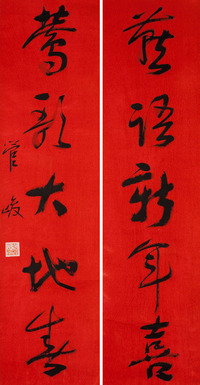 燕語新年喜
鶯歌大地春
管峻